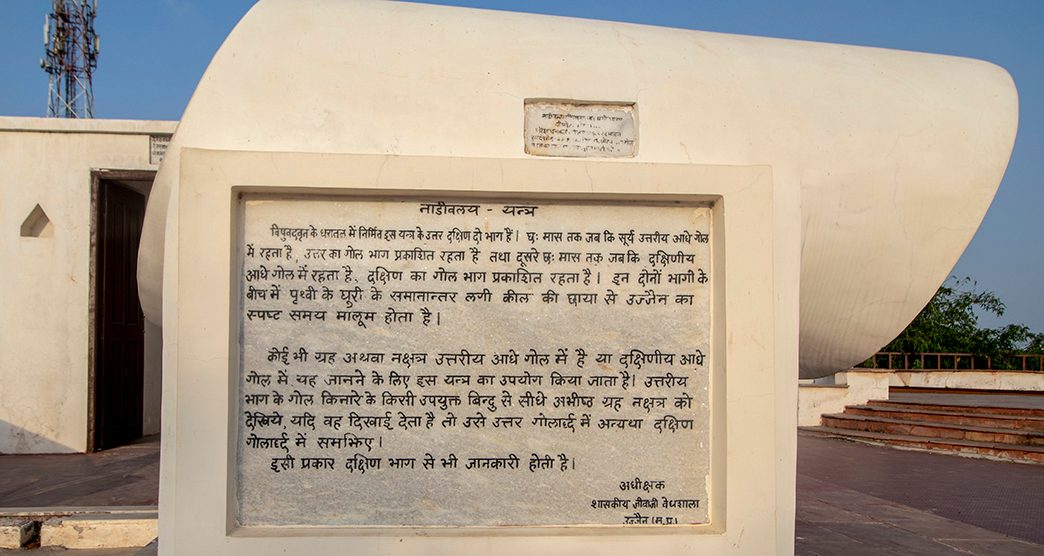 नाडीवलय - यन्त्र
विषुवद्वृत के धरातल में निर्मित इस यन्त्र के उत्तर दक्षिण दो भाग हैं। छः मास तक जब कि सूर्य उत्तरीय आधे गोल
में रहता है, उत्तर का गोल भाग प्रकाशित रहता है तथा दूसरे छः मास तक जब कि दक्षिणीय
आधे गोल में रहता है, दक्षिण का गोल भाग प्रकाशित रहता है। इन दोनों भागों के
बीच में पृथ्वी के धुरी के समानान्तर लगी कील की छाया से उज्जैन का
स्पष्ट समय मालूम होता है।
कोई भी ग्रह अथवा नक्षत्र उत्तरीय आधे गोल में है या दक्षिणीय आधे
गोल में यह जानने के लिए इस यन्त्र का उपयोग किया जाता है। उत्तरीय
भाग के गोल किनारे के किसी उपयुक्त बिन्दु से सीधे अभीष्ठ ग्रह नक्षत्र को
देखिये, यदि वह दिखाई देता है तो उसे उत्तर गोलार्द्ध में अन्यथा दक्षिण
गोलार्द्ध में समझिए।
इसी प्रकार दक्षिण भाग से भी जानकारी होती है।
अधीक्षक
शासकीय जीवाजी वेधशाला
उज्जैन (म.प्र.)